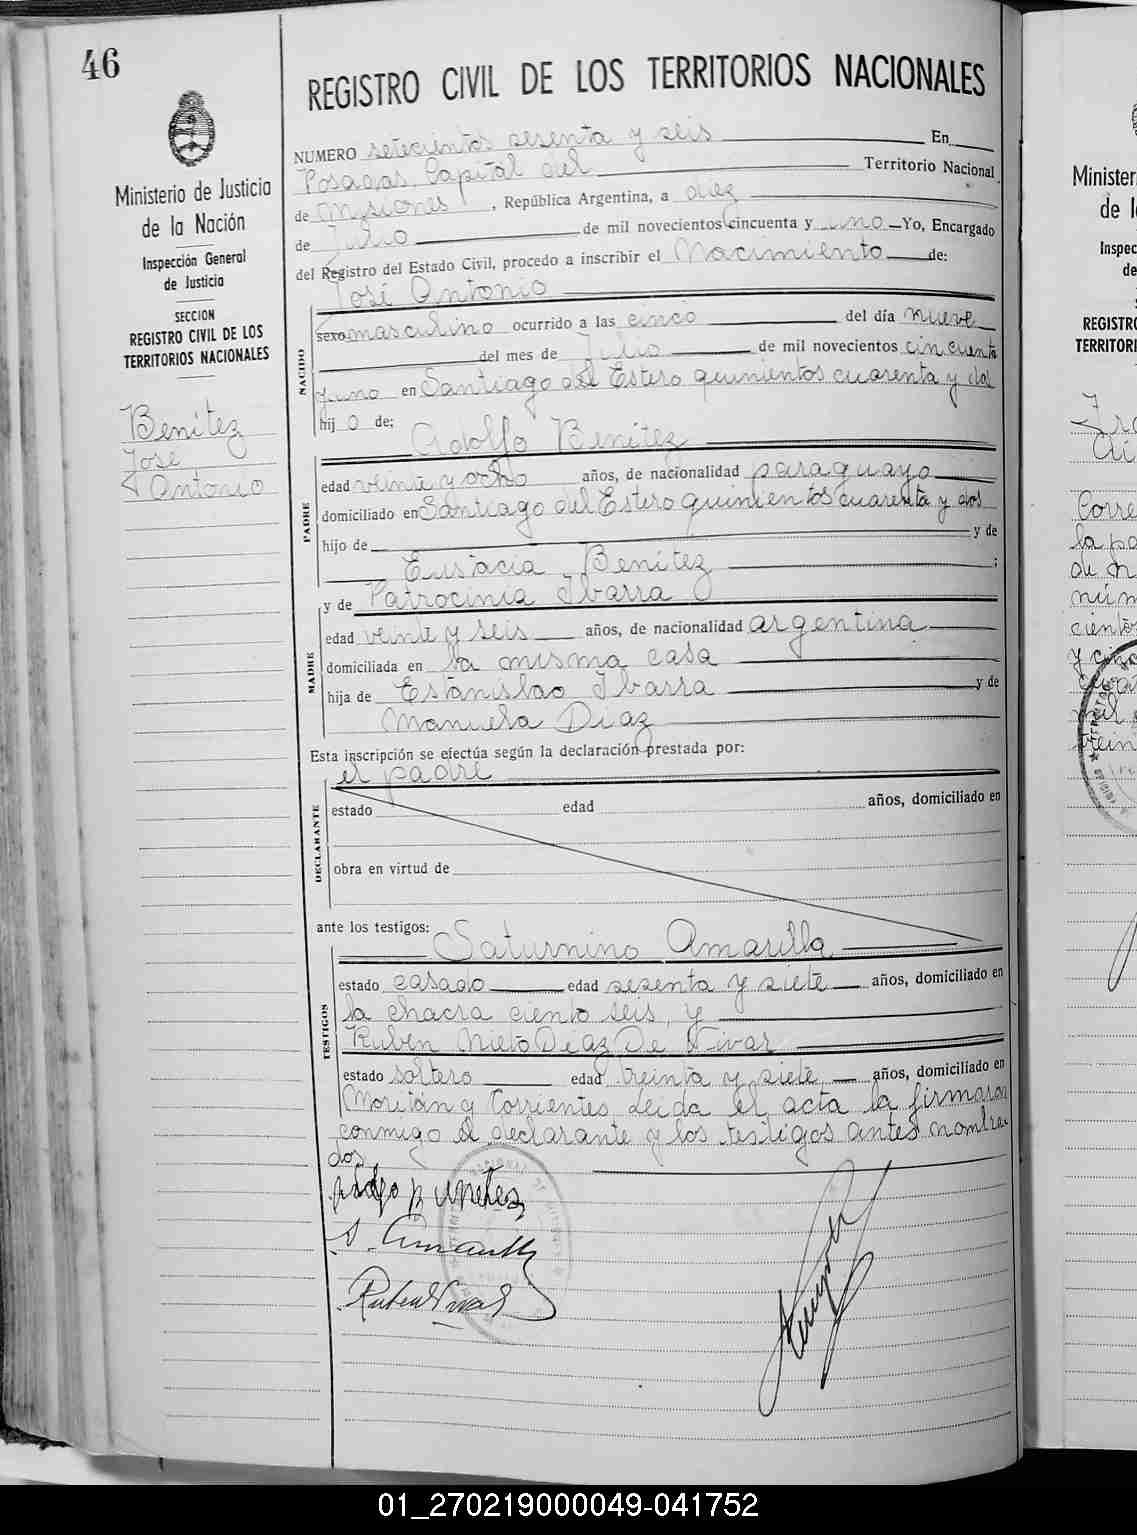 46
Ministerio de Justicia
de la Nación
Inspección General
de Justicia
SECCION
REGISTRO CIVIL DE LOS
TERRITORIOS NACIONALES
Benítez
José
Antonio
REGISTRO CIVIL DE LOS TERRITORIOS NACIONALES
NUMERO setecientos sesenta y seis En
Posadas, Capital del Territorio Nacional
de Misiones, República Argentina, a diez
de Julio de mil novecientos cincuenta y uno Yo, Encargado
del Registro del Estado Civil, procedo a inscribir el Nacimiento de:
José Antonio
NACIDO
sexo masculino ocurrido a las cinco del día nueve
del mes de Julio de mil novecientos cincuenta
y uno en Santiago del Estero quinientos cuarenta y dos
hij o de:
Adolfo Benítez
PADRE
edad veinte y ocho años, de nacionalidad paraguayo
domiciliado en Santiago del Estero quinientos cuarenta y dos
hijo de y de
Eustacia Benítez ;
y de Patrocinia Ibarra
MADRE
edad veinte y seis años, de nacionalidad argentina
domiciliada en la misma casa
hija de Estanislao Ibarra y de
Manuela Díaz
Esta inscripción se efectúa según la declaración prestada por:
el padre
DECLARANTE
estado edad años, domiciliado en
obra en virtud de
ante los testigos:
Saturnino Amarilla
TESTIGOS
estado casado edad sesenta y siete años, domiciliado en
la chacra ciento seis, y
Ruben Nieto Diaz De Vivar
estado soltero edad treinta y siete años, domiciliado en
Moritán y Corrientes. Leida el acta la firmaron
conmigo el declarante y los testigos antes nombra-
dos
S. Amarilla
Ruben Vivar
Minister
de l
Inspec
de
REGISTRO
TERRITORI
Corre
la pa
de N
núm
ciento
y cinc
mil
01_270219000049-041752